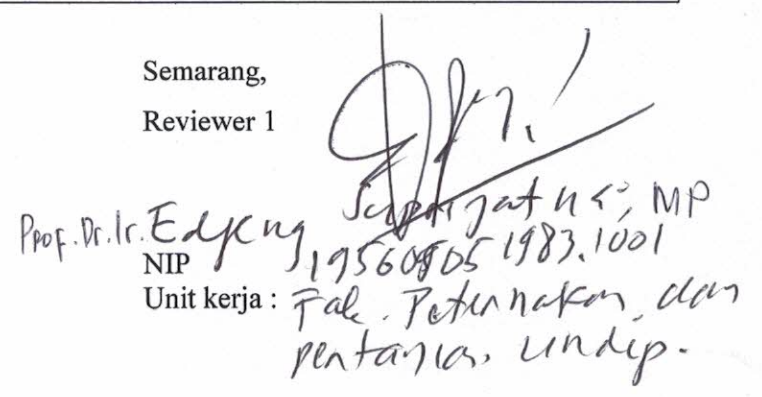 Semarang,
Reviewer 1
Prof. Dr. Ir. Edjeng Suprijatna, MP
NIP 19560905 1983.1001
Unit kerja : Fak. Peternakan dan
pertanian, undip.